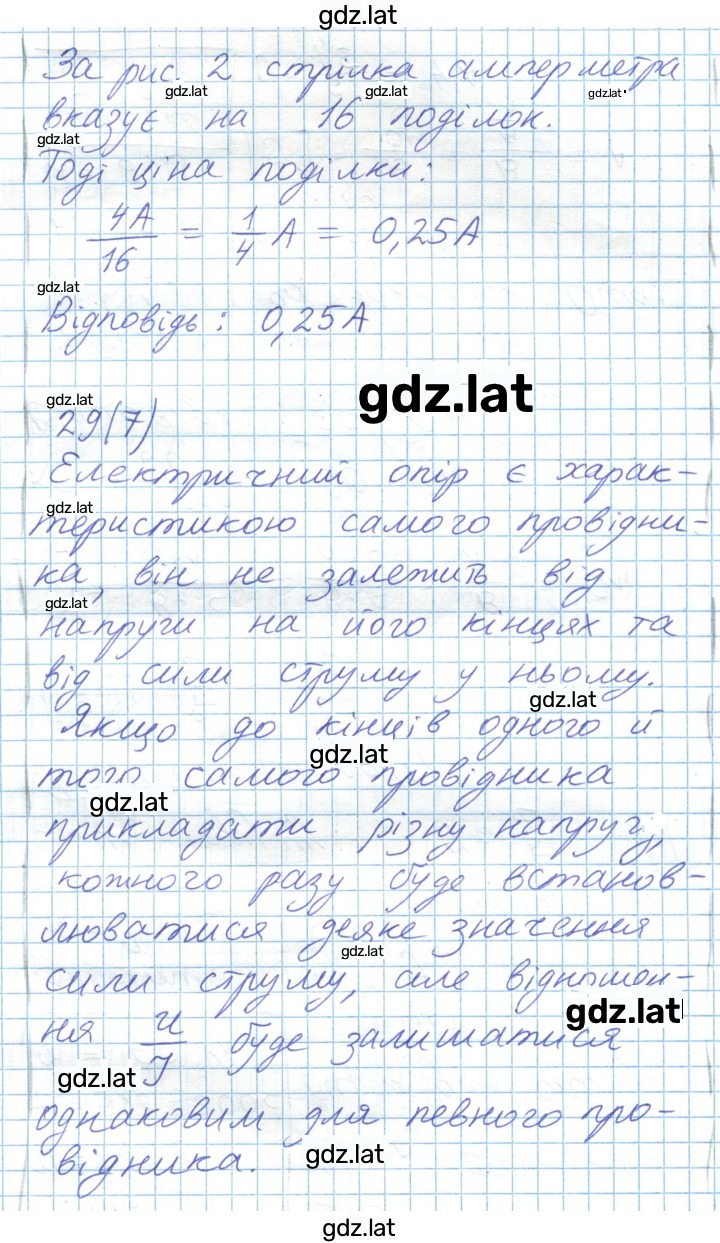 gdz.lat
За рис. 2 стрілка амперметра
gdz.lat gdz.lat gdz.lat
вказує на 16 поділок.
gdz.lat
Тоді ціна поділки:
4А/16 = 1/4 А = 0,25А
gdz.lat
Відповідь: 0,25А
gdz.lat
gdz.lat
29(7)
Електричний опір є харак-
gdz.lat
теристикою самого провідни-
ка, він не залежить від
gdz.lat
напруги на його кінцях та
від сили струму у ньому.
gdz.lat
Якщо до кінців одного й
gdz.lat
того самого провідника
gdz.lat
прикладати різну напругу,
кожного разу буде встанов-
люватися деяке значення
gdz.lat
сили струму, але відношен-
gdz.lat
ня U/I буде залишатися
gdz.lat
однаковим для певного про-
відника.
gdz.lat
gdz.lat